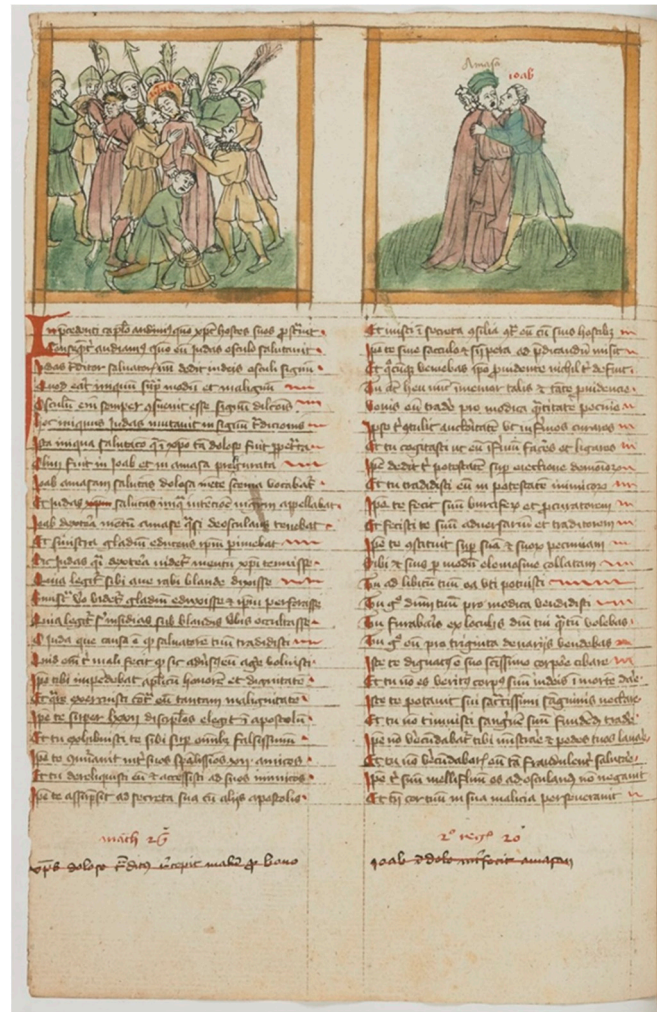 ihesus
Amasa
ioab
In pcedenti caplo audiuimus quo xpc hostes suos pstrauit
Consequenter audiamus quo eu iudas osculo salutauit
Judas traditor saluatoris dedit iudeis osculi signu
Quod erat iniquum supra modu et malignu
Osculu em semper consueuit esse signu dileconis
hoc iniquus Iudas mutauit in signu tradicionis
Ista iniqua salutaco que xpo ta dolose fuit ppetrata
Olim fuit in Ioab et in amasa pfigurata
Ioab amasam salutans dolosa mete frem vocabat
Et Iudas salutans iniqua intencioe mgrm appellabat
Ioab dextera mentu amase quasi deosculans tenebat
Et sinistra gladiu educens ipm pimebat
Sic Iudas dextera videtur mentu xpi tenuisse
Quia legitur sibi aue rabi blande dixisse
Sinistra vero videtur gladiu eduxisse et ipm perforasse
Quia legitur insidias sub blandis verbis occultasse
O iuda que causa e q saluatore tuu tradidisti
Quid em tibi mali fecit q sic aduersus eu agere voluisti
Ipe tibi impendebat aplicu honorem et dignitate
Et quare exercuisti contra eu tantam malignitate
Ipe te super lxxii discipulos elegit in apostolu
Et tu exhibuisti te sibi super omnes falsissimu
Ipe te connumerauit inter suos spalissimos xii amicos
Et tu dereliquisti eu et accessisti ad suos inimicos
Ipe te assumpsit ad secreta sua cu alijs apostolis
math 26
xps dolose traditus recepit malu pro bono
Et inisti secreta consilia contra eu cu suis hostibus
Ipe te sine sacculo et sine pera ad predicandu misit
Et quocuq veniebas ipo prouidente nichil tibi defuit
Tu autem heu inmemor talis et tante prudencie
Venis eu tradere pro modica quantitate pecunie
Ipse tibi contulit auctoritatem vt infirmos curares
Et tu cogitasti ut eu infirmu faceres et ligares
Ipe dedit tibi potestate super eiectione demonioru
Et tu tradidisti eu in potestate inimicoru
Ipe te fecit suu bursifex et procuratorem
Et fecisti te suu aduersariu et traditorem
Ipe te constituit super suam et suoru pecuniam
Sibi et suis per modu elemosine collatam
Tu ad libitu tuu ea vti potuisti
Tu ergo dnm tuum pro modica vendidisti
Tu furabaris ex loculis dni tui quantu volebas
Tu ergo eu pro triginta denarijs vendebas
Iste te dignatus e suo scissimo corpore cibare
Et tu no es veritus corpus suu iudeis in morte dare
Iste te potauit sui sacratissimi sanguinis nectare
Et tu no timuisti sanguine suu fundendu tradere
Ipe no verecundabatur tibi ministrare et pedes tuos lauare
Et tu no verecundabaris eu ta fraudulenter salutare
Ipe tibi suu mellifluum os ad osculandu no negauit
Et tn cor tuum in sua malicia perseuerauit
2º regu 20
ioab dolose interfecit amasam